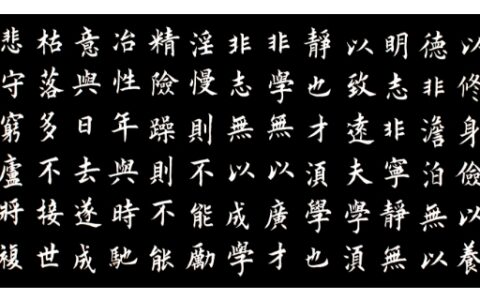 以修身儉以養
德非澹泊無以
明志非寧靜無
以致遠夫學須
靜也才須學也
非學無以廣才
非志無以成學
淫慢則不能勵
精險躁則不能
冶性年與時馳
意與日去遂成
枯落多不接世
悲守窮廬將複